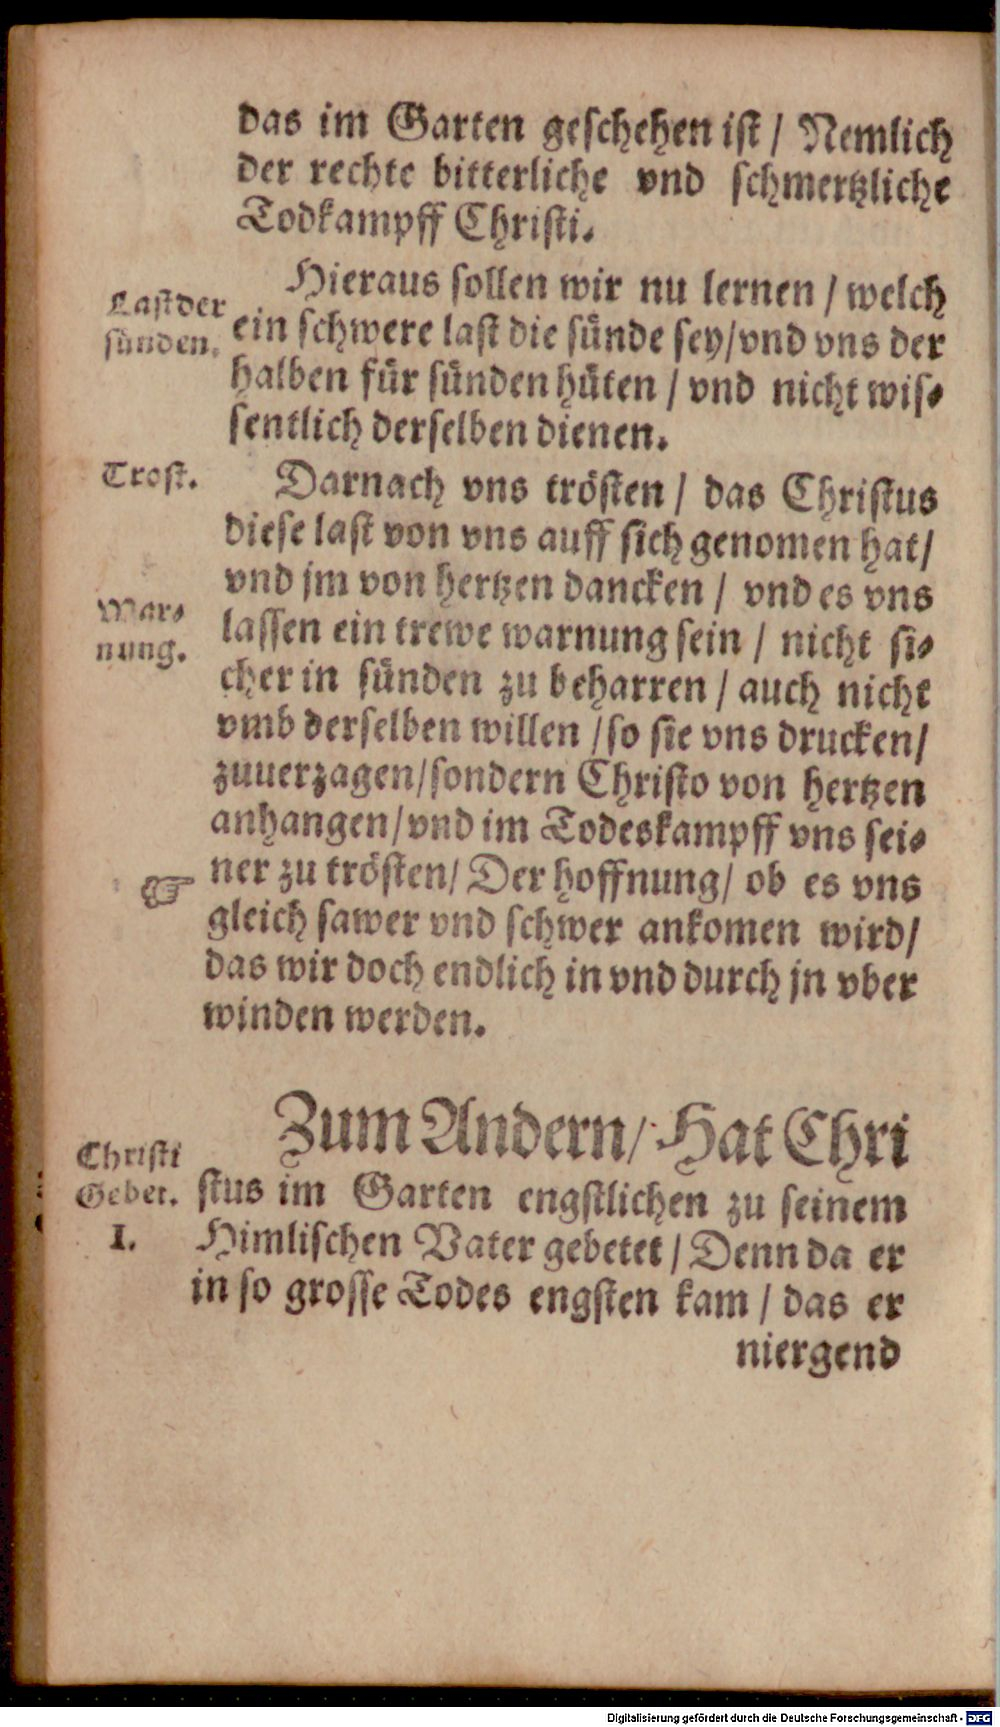 das im Garten geschehen ist / Nemlich
der rechte bitterliche vnd schmertzliche
Todkampff Christi.
Hieraus sollen wir nu lernen / welch
Last der
sünden.
ein schwere last die sünde sey/vnd vns der
halben für sünden hüten / vnd nicht wis⸗
sentlich derselben dienen.
Trost.
Darnach vns trösten / das Christus
diese last von vns auff sich genomen hat/
vnd jm von hertzen dancken / vnd es vns
War⸗
nung.
lassen ein trewe warnung sein / nicht si⸗
cher in sünden zu beharren / auch nicht
vmb derselben willen /so sie vns drucken/
zuuerzagen/sondern Christo von hertzen
anhangen/vnd im Todeskampff vns sei⸗
☞ ner zu trösten/ Der hoffnung/ ob es vns
gleich sawer vnd schwer ankomen wird/
das wir doch endlich in vnd durch jn vber
winden werden.
Zum Andern/ Hat Chri
Christi
Gebet.
I.
stus im Garten engstlichen zu seinem
Himlischen Vater gebetet / Denn da er
in so grosse Todes engsten kam / das er
niergend
Digitalisierung gefördert durch die Deutsche Forschungsgemeinschaft - DFG